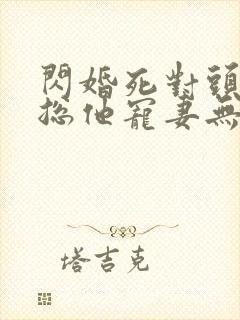 閃婚死對頭
總他寵妻無
塔吉克